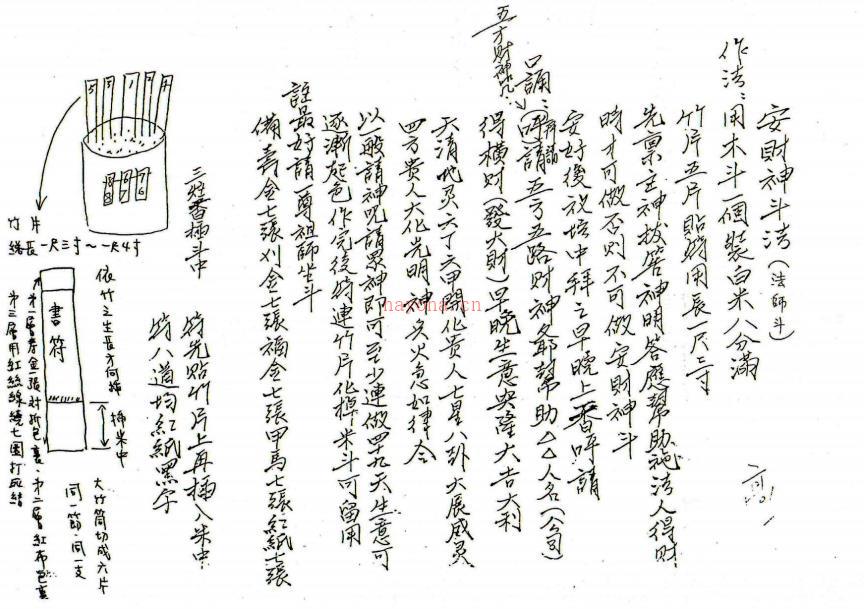 安財神斗法(法師斗)
作法:用木斗一個裝白米八分滿
竹片五片貼符用長一尺三寸
先稟主神拔筶神明答應幫助施法人得財
時才可做否則不可做安財神斗
安好後放壇中拜之早晚上香呼請
口誦:呼請五方五路財神爺幫助△△人名(公司)
五方財神咒:
得橫財(發大財)早晚生意興隆大吉大利
天清地灵六丁六甲開化贵人七星八卦大展威灵
四方貴人大化光明神兵火急如律令
以一般請神咒請眾神即可至少連做四十九天生意可
逐漸起色作完後符連竹片化掉米斗可留用
註最好請一尊祖師坐斗
備壽金七張刈金七張福金七張甲馬七張紅紙七張
三炷香插斗中
符先貼竹片上再插入米中
符八道均紅紙黑字
5 3 1 2 4
8 6 7
竹片
總長一尺三寸~一尺4寸
依竹之生長方向插
書符
插米中
大竹筒切成六片
同一節同一支
第一層壽金一張對折包裹、第二層紅布包裹
第三層用紅絲線繞七圈打死結
haxona.cn